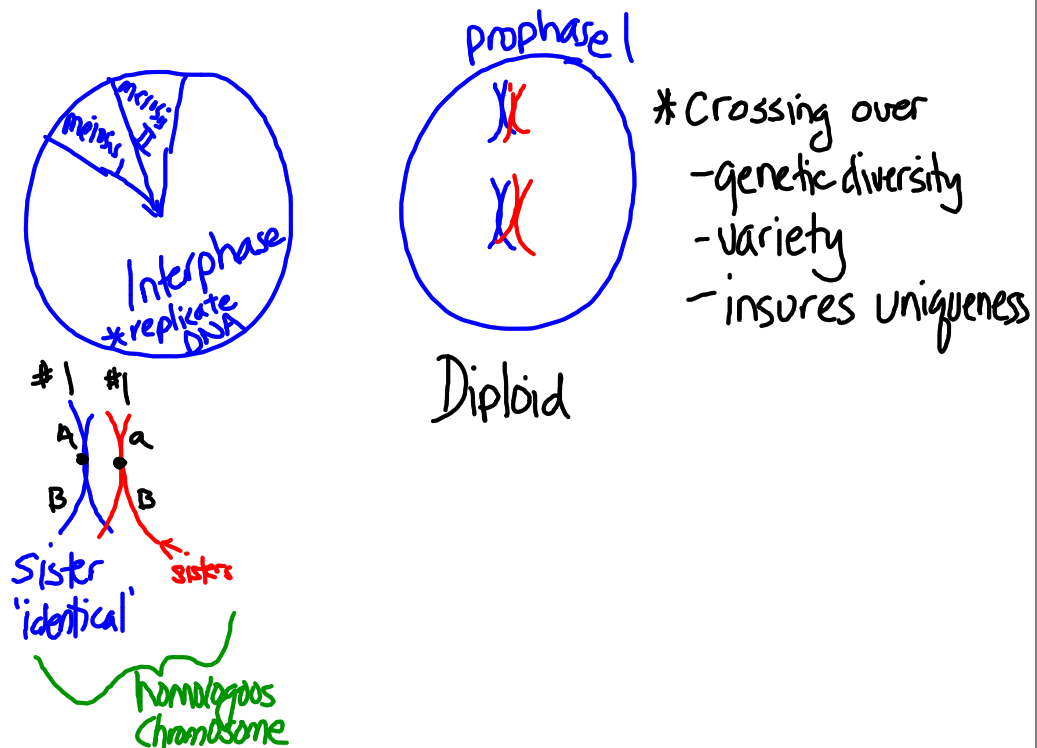 prophase 1
meiosis
II
meiosis
1
Interphase
*replicate
DNA
* Crossing over
- genetic diversity
- variety
- insures uniqueness
Diploid
#1 #1
A a
B B
Sister
"identical"
sisters
homologous
Chromosome